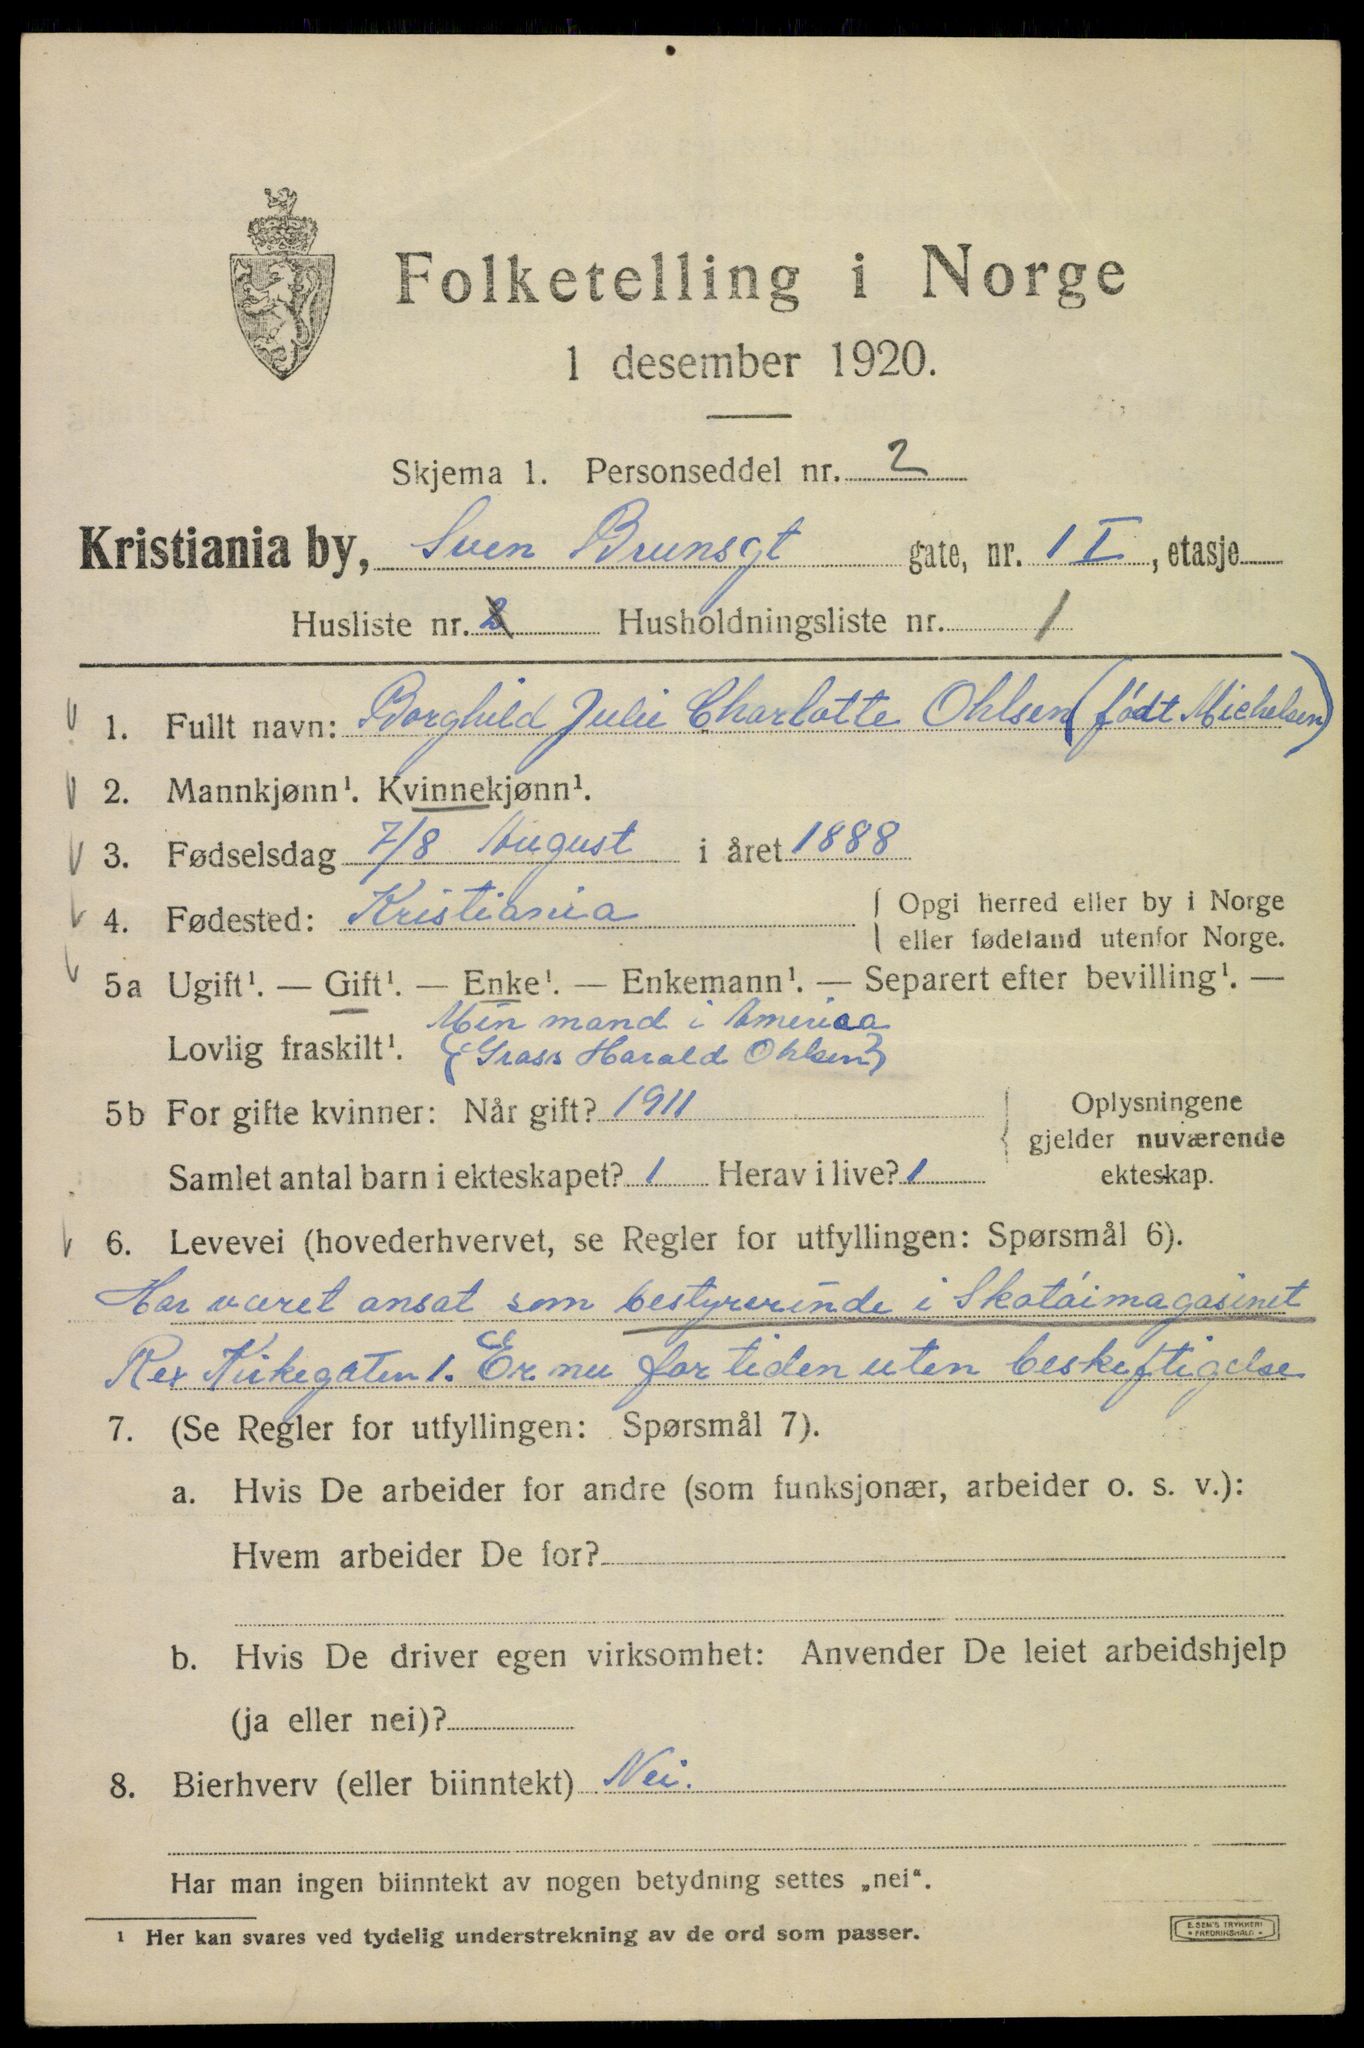 Folketelling i Norge
1 desember 1920.
Skjema 1. Personseddel nr. 2
Kristiania by, Sven Brunsgt gate, nr. 1 I, etasje
Husliste nr. 2 Husholdningsliste nr. 1
1. Fullt navn: Borghild Julie Charlotte Ohlsen (født Michelsen)
2. Mannkjønn¹. Kvinnekjønn¹.
3. Fødselsdag 7/8 August i året 1888
4. Fødested: Kristiania { Opgi herred eller by i Norge
eller fødeland utenfor Norge.
5a Ugift¹. — Gift¹. — Enke¹. — Enkemann¹. — Separert efter bevilling¹. —
Min mand i America
Lovlig fraskilt¹. { Grass Harald Ohlsen }
5b For gifte kvinner: Når gift? 1911
Oplysningene
gjelder nuværende
ekteskap.
Samlet antal barn i ekteskapet? 1 Herav i live? 1
6. Levevei (hovederhvervet, se Regler for utfyllingen: Spørsmål 6).
Har været ansat som bestyrerinde i Skotøimagasinet
Rex Kirkegaten 1. Er nu for tiden uten beskeftigelse
7. (Se Regler for utfyllingen: Spørsmål 7).
a. Hvis De arbeider for andre (som funksjonær, arbeider o. s. v.):
Hvem arbeider De for?
b. Hvis De driver egen virksomhet: Anvender De leiet arbeidshjelp
(ja eller nei)?
8. Bierhverv (eller biinntekt) Nei.
Har man ingen biinntekt av nogen betydning settes „nei“.
¹ Her kan svares ved tydelig understrekning av de ord som passer.
E. SEM'S TRYKKERI
• FREDRIKSHALD •